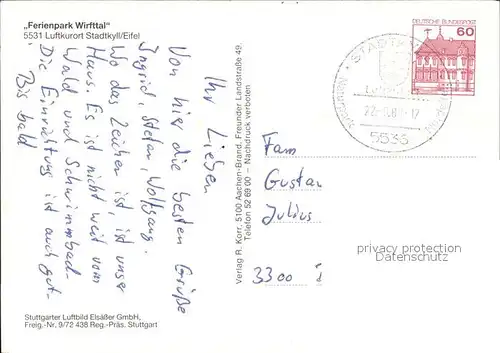 „Ferienpark Wirfttal"
5531 Luftkurort Stadtkyll/Eifel
Ihr Lieben
Von hier die besten Grüße
Ingrid, Stefan, Wolfgang.
Wo das Zeichen ist, ist unser
Haus. Es ist nicht weit vom
Wald und Schwimmbad
Die Einrichtung ist auch gut.
Bis bald
Stuttgarter Luftbild Elsäßer GmbH,
Freig.-Nr. 9/72 438 Reg.-Präs. Stuttgart
Verlag R. Korr, 5100 Aachen-Brand, Freunder Landstraße 49,
Telefon 52 69 00 – Nachdruck verboten
DEUTSCHE BUNDESPOST
60
STADTKYLL
5533
Fam
Gustav
Julius
3300
privacy protection
Datenschutz